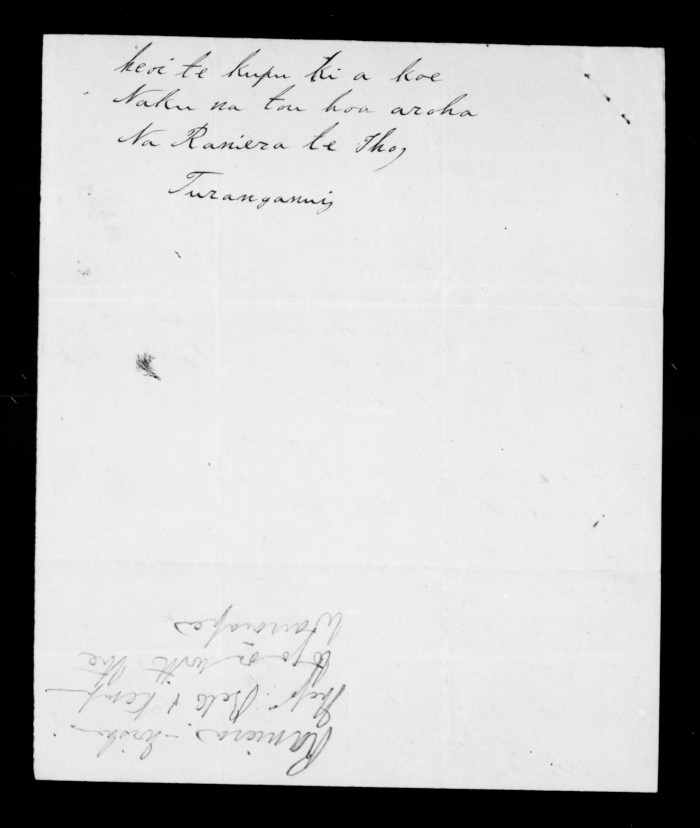 heoi te kupu ki a koe
Naku na tou hoa aroha
Na Raniera te Iho,
Turanganui,
Raniera
to go on with the